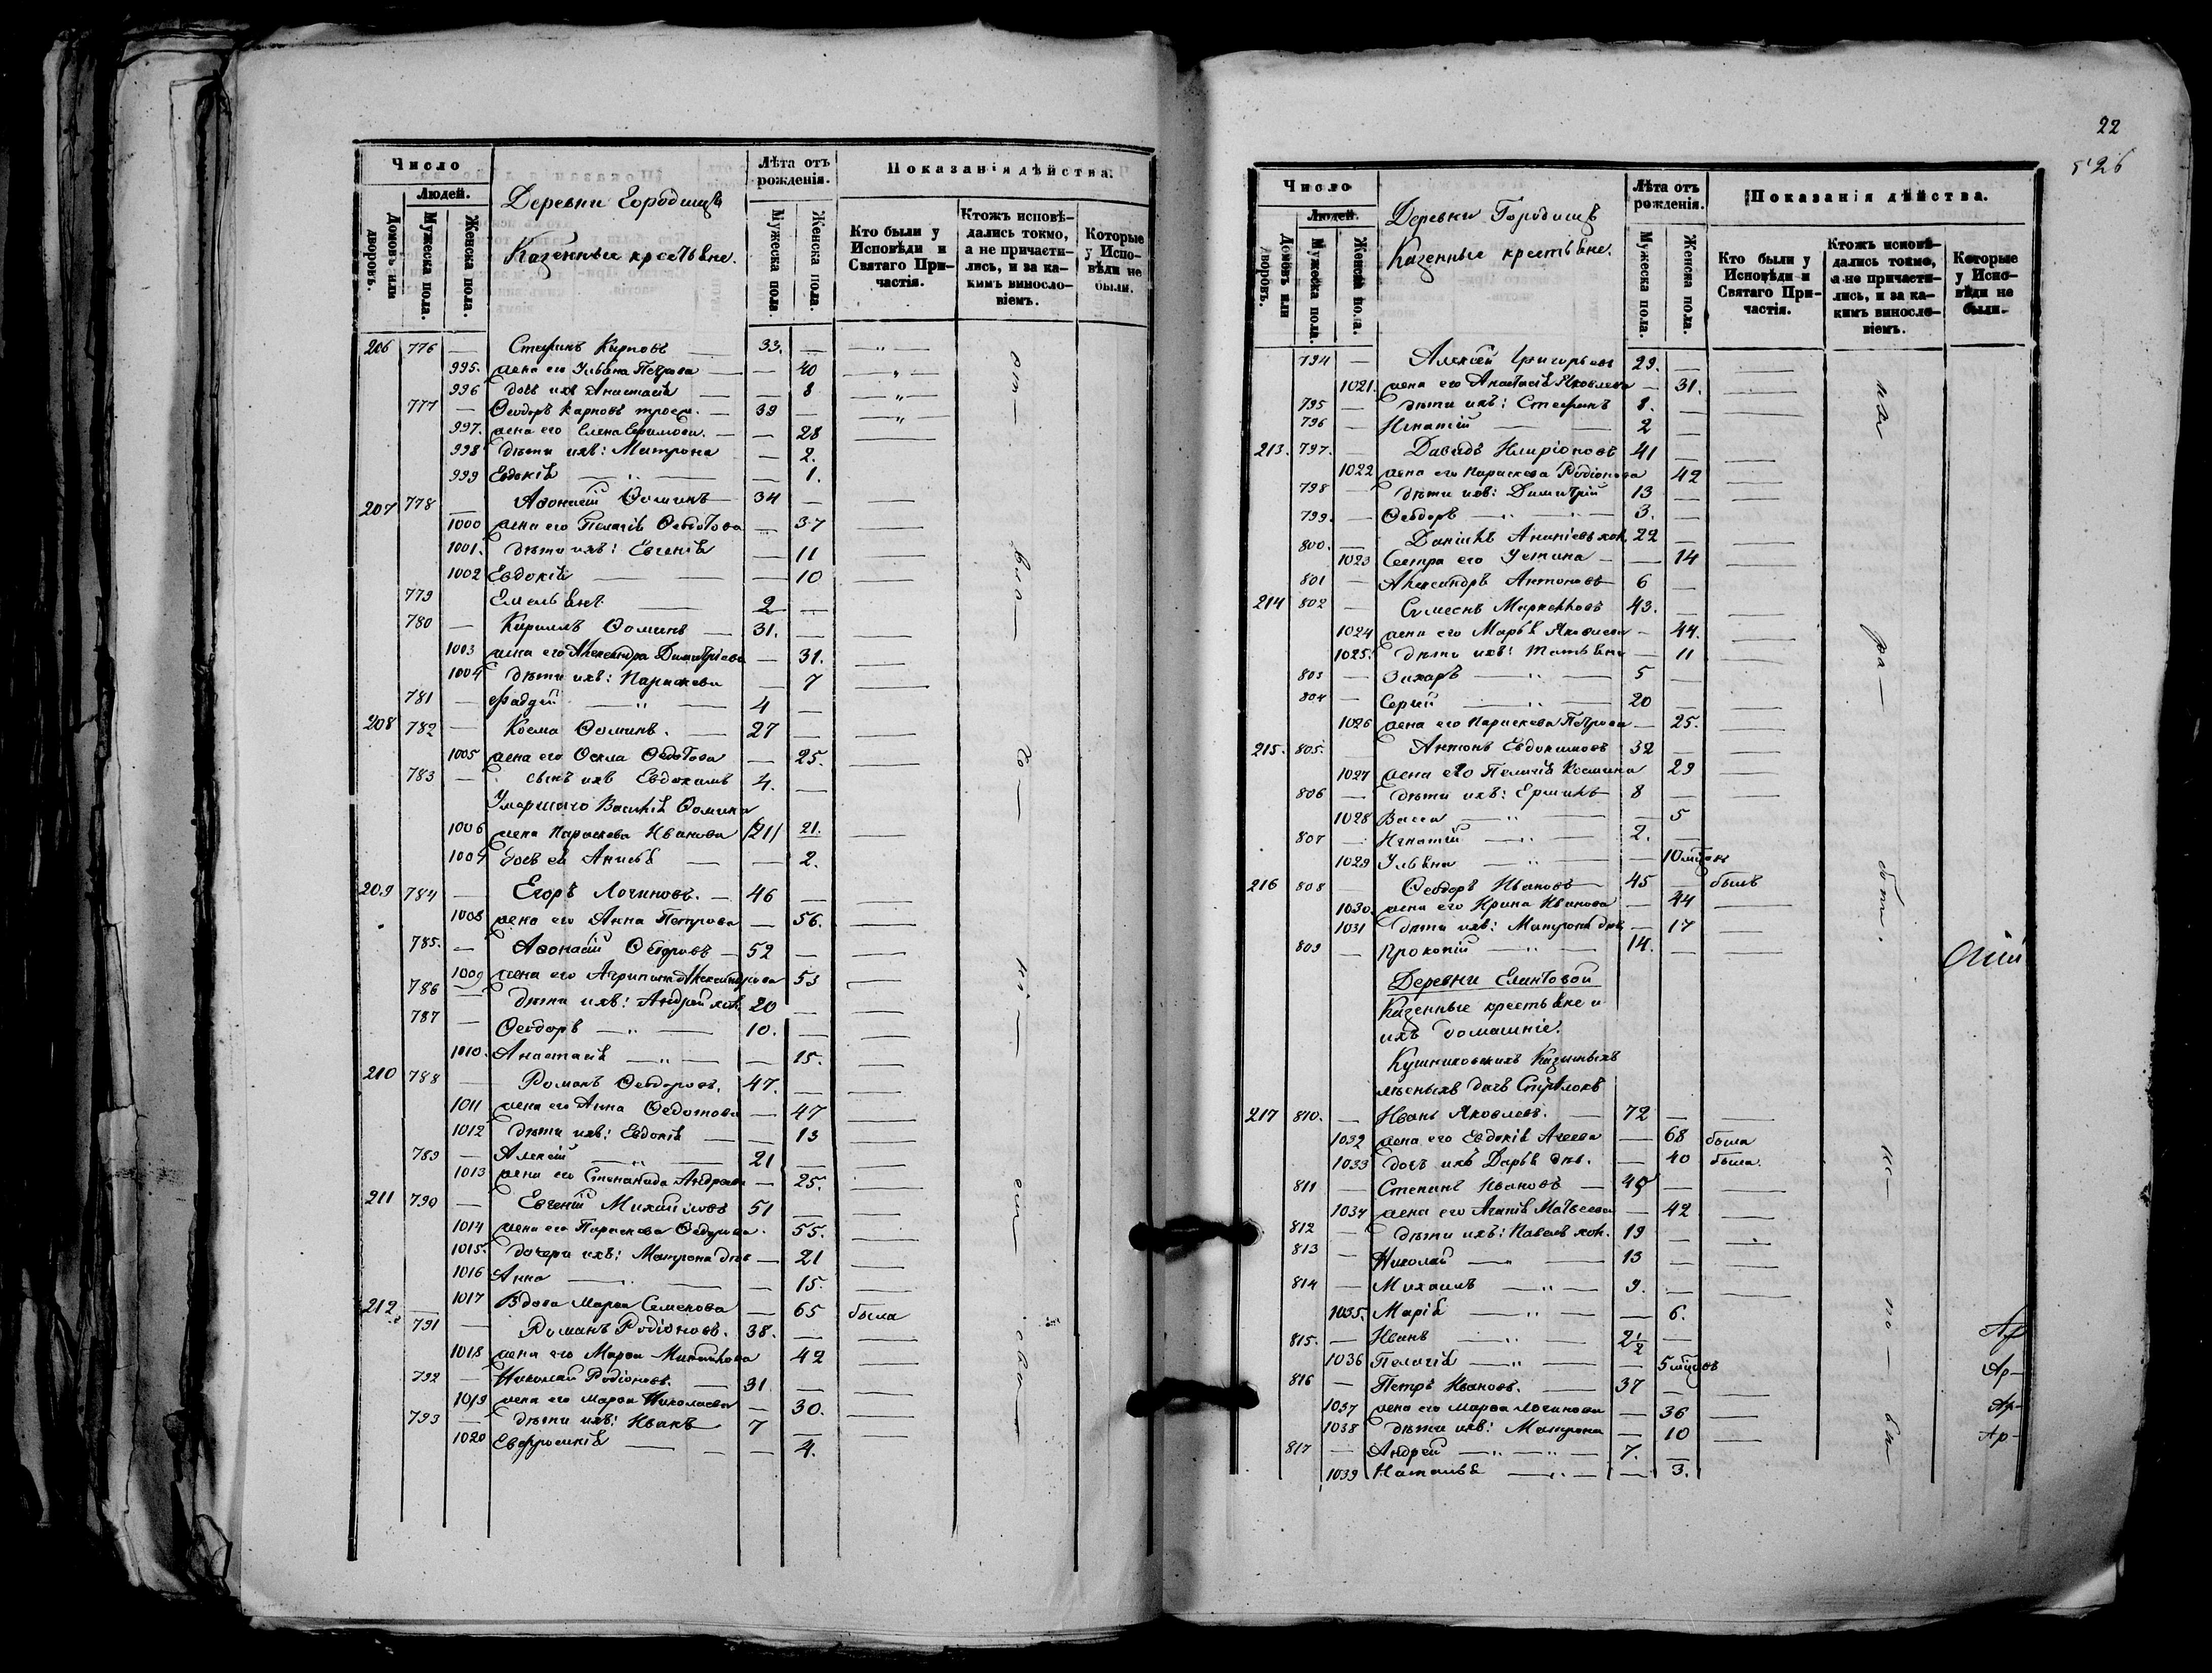 Число
Людей.
Домовъ или дворовъ.
Мужеска пола.
Женска пола.
Деревни Городищъ
Казенные крестьяне.
Лѣта отъ рожденія.
Мужеска пола.
Женска пола.
Показанія дѣйства.
Кто были у Исповѣди и Святаго Причастія.
Ктожъ исповѣдались токмо, а не причастились, и за какимъ винословіемъ.
Которые у Исповѣди не были.
206 776 — Стефанъ Карповъ — 33. —
995. жена его Ульяна Петрова — — 40
996 дочь ихъ Анастасія — 8
777 — Ѳеодоръ Карповъ — 39 —
997. жена его Елена Ефимова. — — 28
998 дѣти ихъ: Матрона — 2.
999 Евдокія — " — — 1.
207 778 — Аѳонасій Ѳоминъ — 34 —
1000 жена его Пелагія Ѳедотова — 37
1001. дѣти ихъ: Евгенія — 11
1002 Евдокія — — 10
779 — Емельянъ — 2 —
780 — Кириллъ Ѳоминъ — 31. —
1003 жена его Александра Димитріева — 31.
1004 дѣти ихъ: Параскева — 7
781 — Фаддей — " — 4 —
208 782 — Косма Ѳоминъ. — 27 —
1005 жена его Ѳекла Ѳедотова — 25.
783 — сынъ ихъ Евдокимъ 4. —
Умершаго Василія Ѳомина
1006 жена Параскева Иванова /21/ 21.
1007 дочь ея Анисья — — 2.
209 784 — Егоръ Логиновъ. — 46 —
1008 жена его Анна Петрова — 56.
785. — Аѳонасій Ѳедоровъ — 52 —
1009 жена его Агрипина Александрова 53
786 — дѣти ихъ: Андрей хол. 20 —
787 — Ѳеодоръ — " — 10. —
1010. Анастасія — " — — 15.
210 788 — Романъ Ѳеодоровъ. 47. —
1011 жена его Анна Ѳедотова — 47
1012 дѣти ихъ: Евдокія — — 13
789 — Алексій — " — 21 —
1013 жена его Степанида Андреева — 25.
211 790 — Евгеній Михайловъ 51 —
1014 жена его Параскева Ѳедорова. 55.
1015. дочери ихъ: Матрона двц — 21
1016 Анна — " — 15.
212. 1017 Вдова Марѳа Семенова — 65 была
791 — Романъ Родіоновъ. 38. —
1018 жена его Марѳа Михайлова 42
792 — Николай Родіоновъ. — 31 —
1019 жена его Марѳа Николаева — 30.
793 — дѣти ихъ: Иванъ — 7 —
1020 Евфросинія — — 4.
22
526
Число
Людей.
Домовъ или дворовъ.
Мужеска пола.
Женска пола.
Деревни Городищъ
Казенные крестьяне.
Лѣта отъ рожденія.
Мужеска пола.
Женска пола.
Показанія дѣйства.
Кто были у Исповѣди и Святаго Причастія.
Ктожъ исповѣдались токмо, а не причастились, и за какимъ винословіемъ.
Которые у Исповѣди не были.
794 — Алексій Григорьевъ 29. —
1021. жена его Анастасія Яковлева — 31.
795 — дѣти ихъ: Стефанъ 8. —
796 — Игнатій — 2 —
213. 797. — Давидъ Иларіоновъ 41 —
1022 жена его Параскева Родіонова 42
798 — дѣти ихъ: Димитрій 13 —
799. — Ѳеодоръ — " — 3. —
800. — Даніилъ Ананіевъ хол. 22 —
1023 Сестра его Устина — — 14
801 — Александръ Антоновъ — 6 —
214 802 — Симеонъ Маркелловъ 43. —
1024 жена его Марья Яковлева — 44.
1025. дѣти ихъ: Татьяна — 11
803 — Захаръ — " — 5 —
804 — Сергій — " — 20 —
1026 жена его Параскева Петрова — 25.
215. 805. Антонъ Евдокимовъ 32 —
1027 жена его Пелагія Космина 29
806 — дѣти ихъ: Ермилъ — 8 —
1028 Васса — " — — 5
807 — Игнатій — " — 2. —
1029 Ульяна — " — — 10 мѣсяц
216 808 — Ѳеодоръ Ивановъ — 45 — былъ
1030. жена его Ирина Иванова — 44
1031 дѣти ихъ: Матрона двц — 17
809 — Прокопій — " — 14. —
Деревни
Казенные крестьяне и
ихъ домашніе.
Казенныхъ
лѣсныхъ дачъ Стрѣлокъ
217 810. — Иванъ Яковлевъ. — 72 —
1032 жена его Евдокія Агеева — 68 была
1033 дочь ихъ Дарья двц. — 40 была.
811 — Степанъ Ивановъ — 45 —
1034 жена его Агапія Матвеева — 42
812 — дѣти ихъ: Павелъ хол. 19 —
813 — Николай — " — 13 —
814 — Михаилъ — " — 9. —
1035. Марія — " — 6.
815. — Иванъ — " — 2½ —
1036 Пелагія — " — — 5 мѣсяцовъ
816 — Петръ Ивановъ. — 37 —
1037 жена его Марѳа Логинова — 36
1038 дѣти ихъ: Матрона — 10
817 — Андрей — " — 7. —
1039 Наталья — " — — 3.